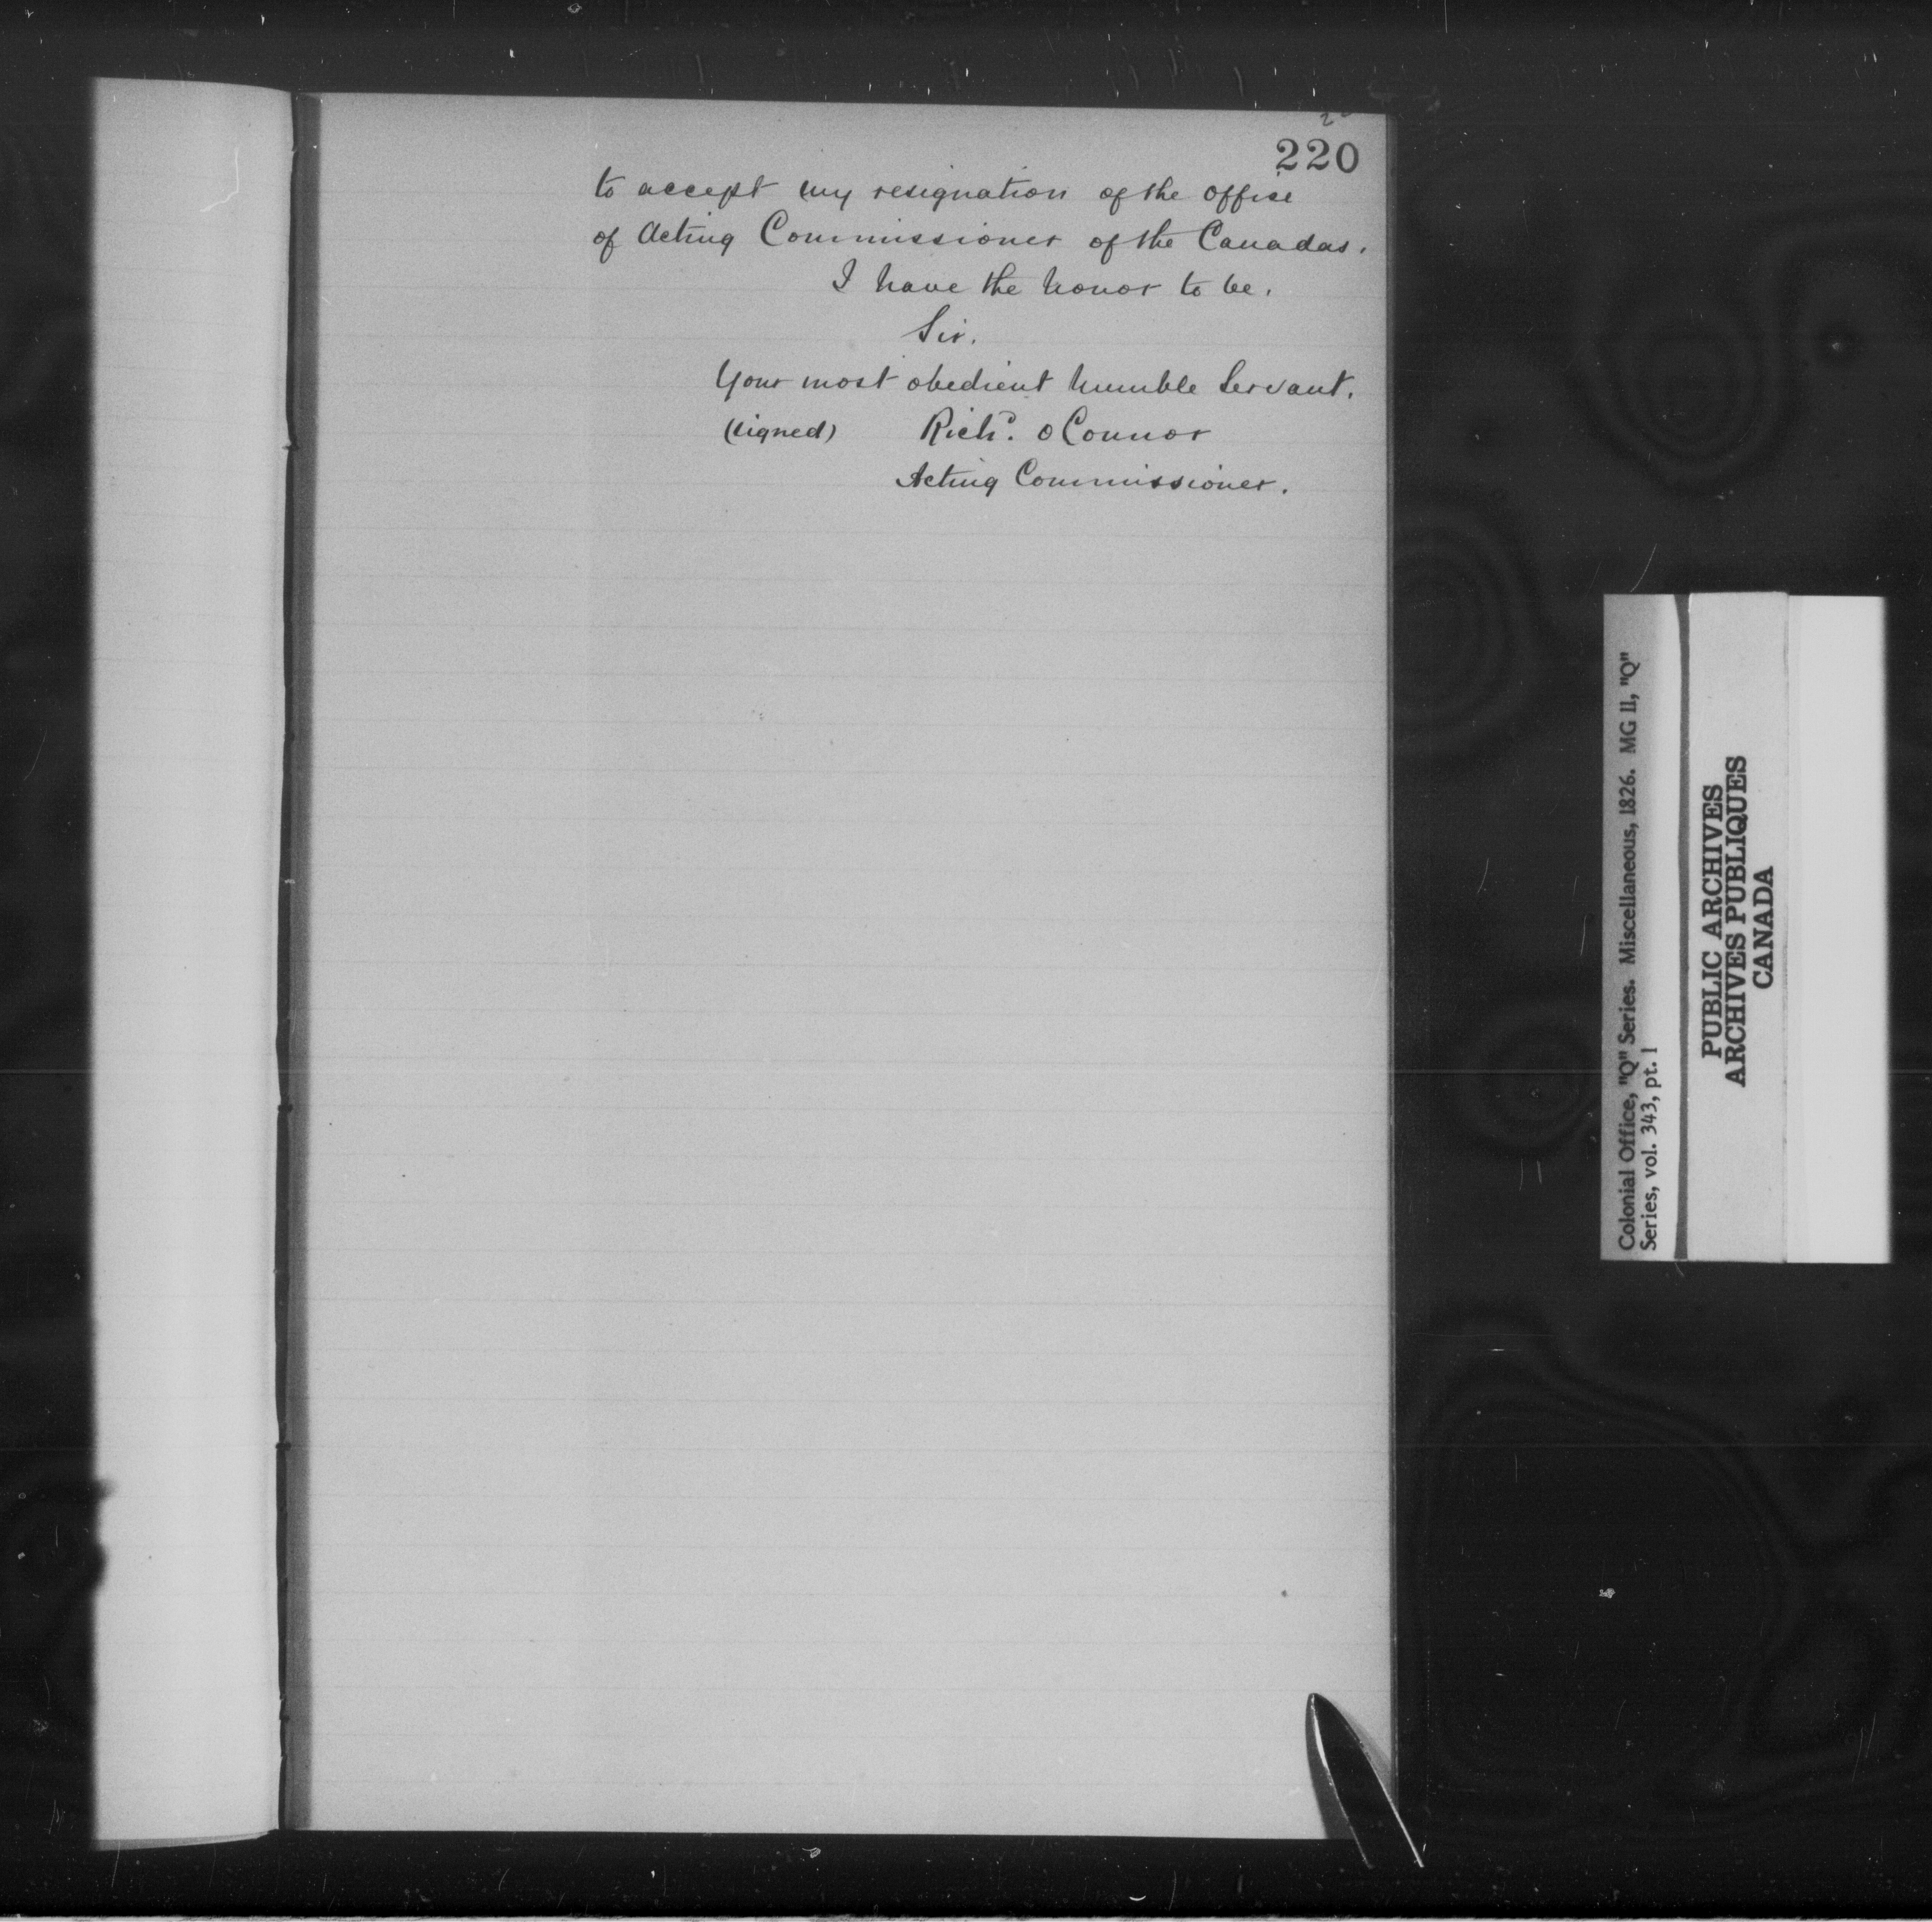 220
to accept my resignation of the office
of Acting Commissioner of the Canadas.
I have the honor to be.
Sir.
Your most obedient humble Servant.
(signed) Richd. O Connor
Acting Commissioner.
Colonial Office, "Q" Series. Miscellaneous, 1826. MG 11, "Q"
Series, vol. 343, pt. 1
PUBLIC ARCHIVES
ARCHIVES PUBLIQUES
CANADA